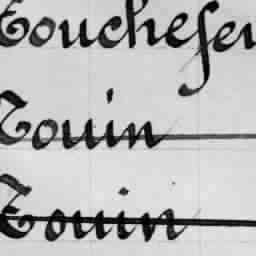 Touchefeu
Touin
Touin